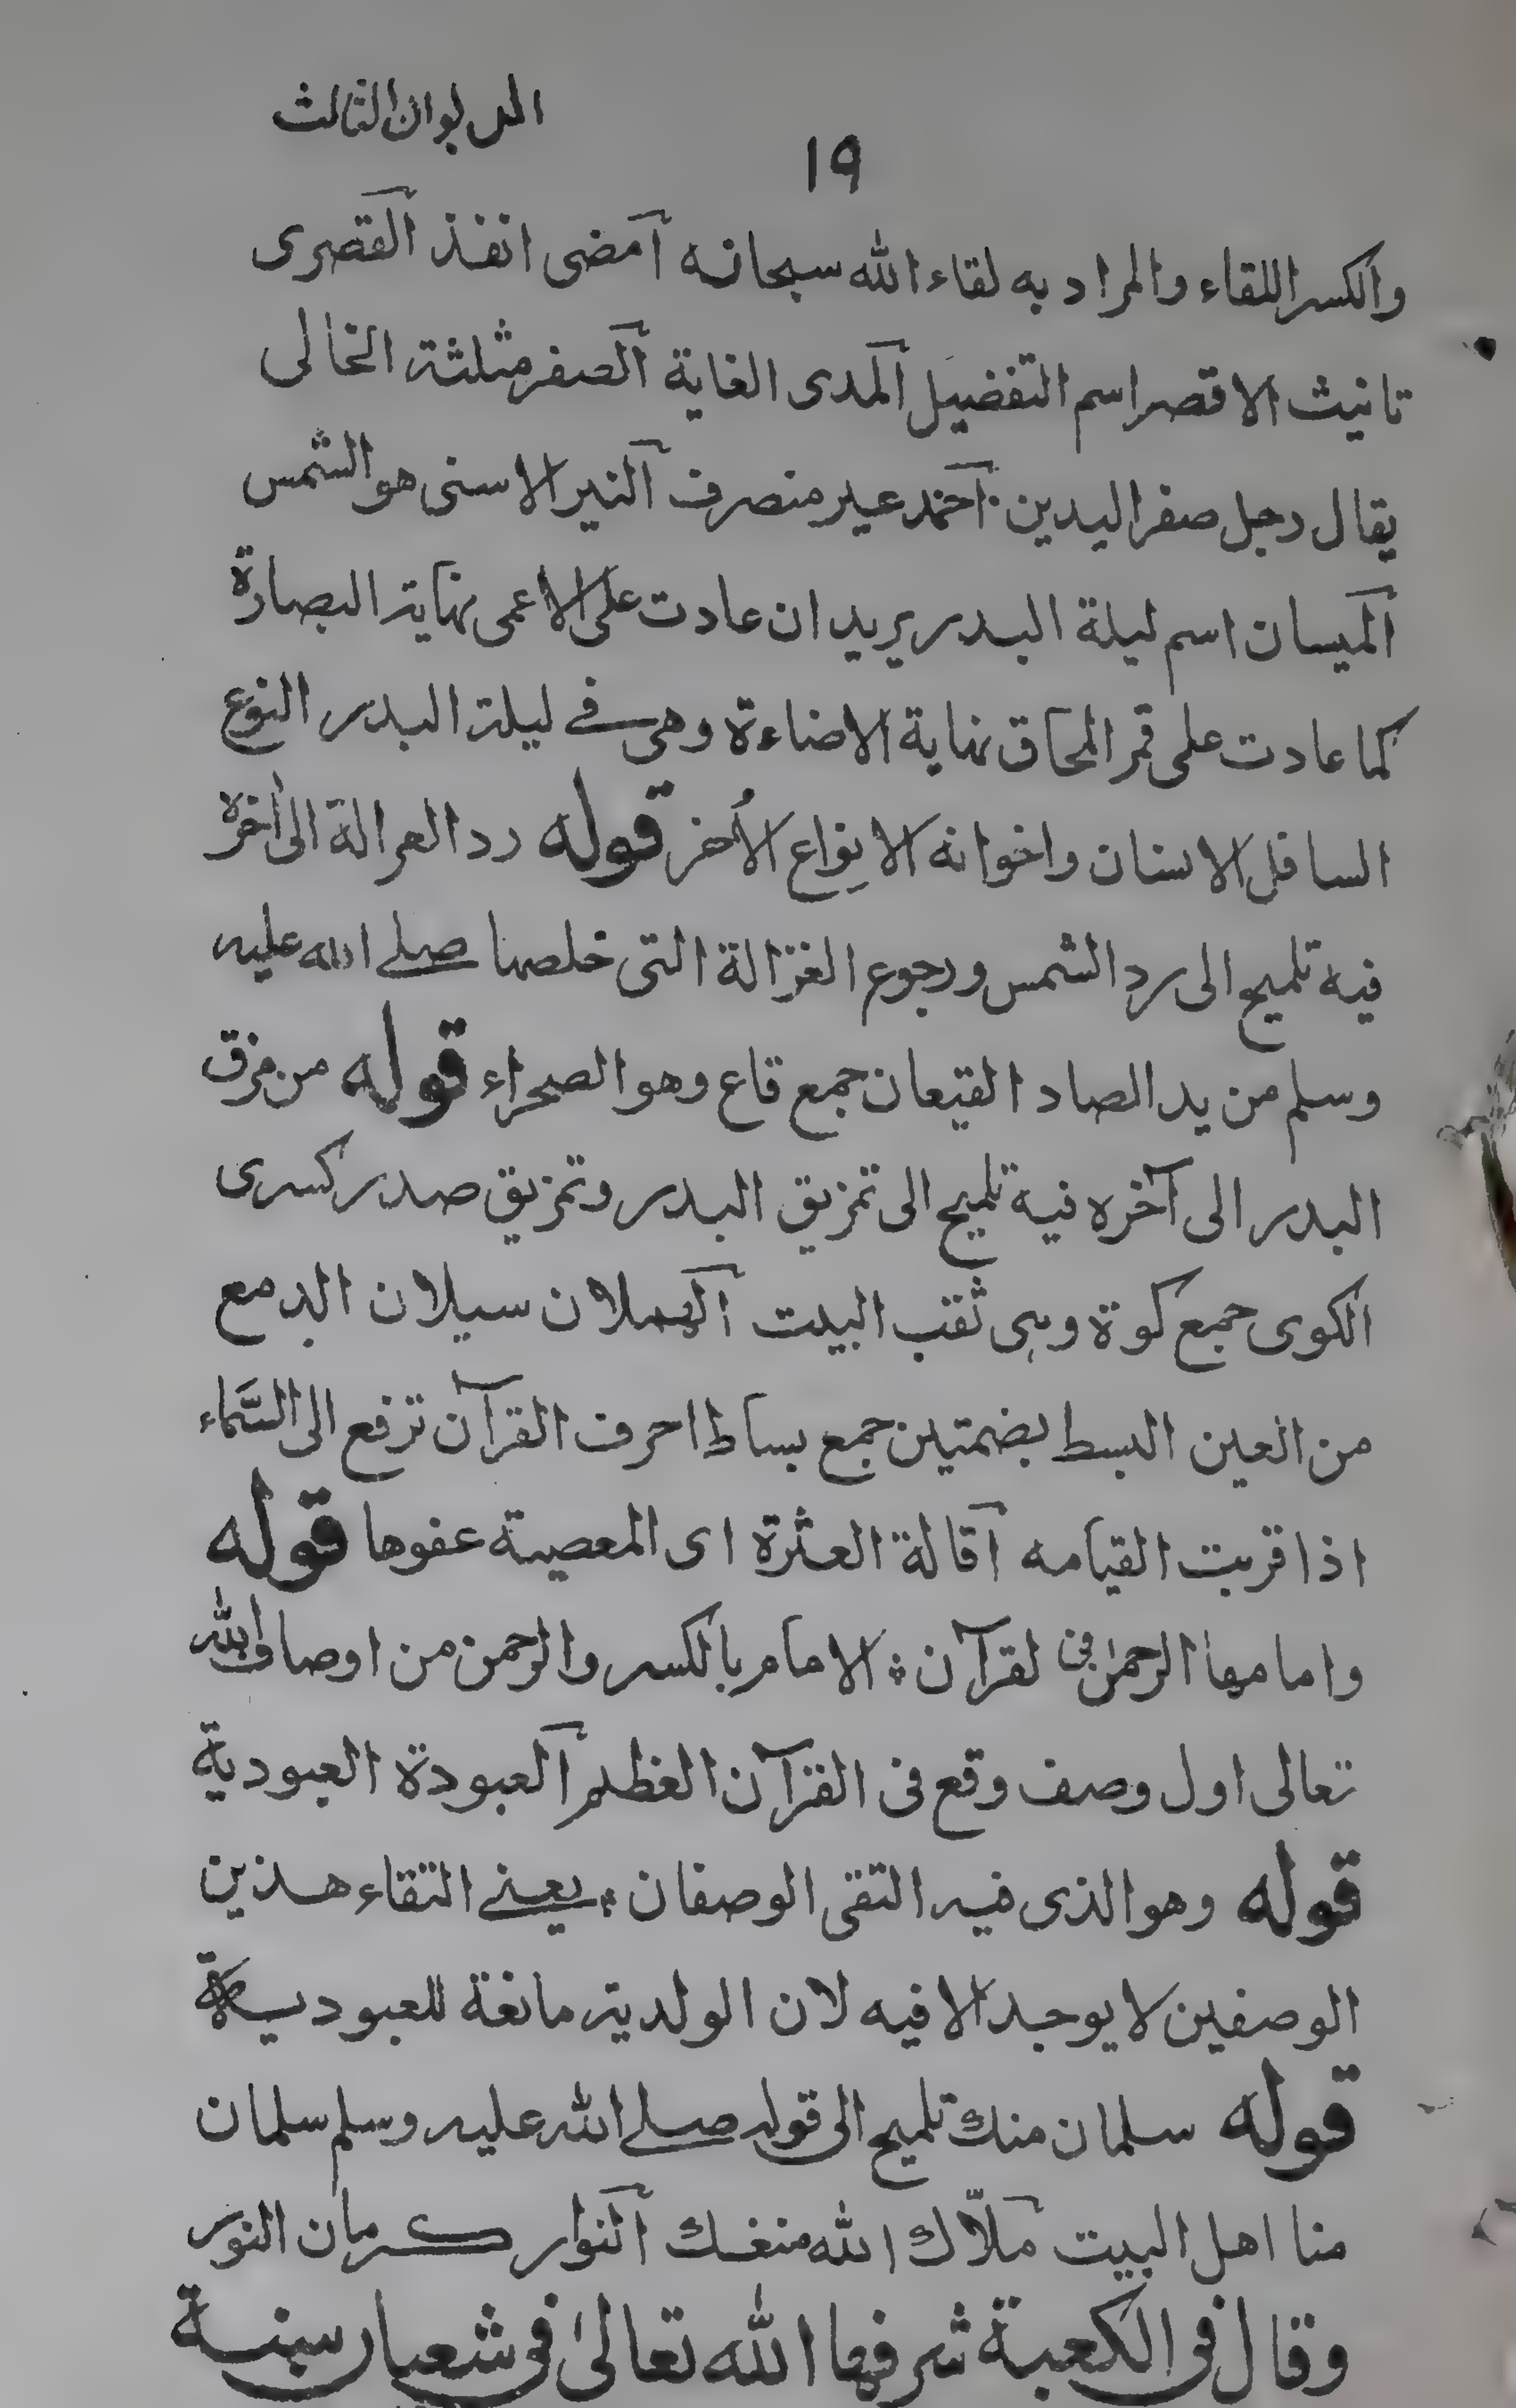 الديوان الثالث
١٩
والكسر اللقاء والمراد به لقاء الله سبحانه آمضى انفذ آلقصرى
تانيث الاقصر اسم التفضيل آلمدى الغاية آلصفر مثلثة الخالى
يقال رجل صفر اليدين آحمد غير منصرف آلنير الاسنى هو الشمس
آلميسان اسم ليلة البدر يريد ان عادت على الاعمى نهاية البصارة
كما عادت على قمر المحاق نهاية الاضاءة وهى فے ليلة البدر النوع
السافل الانسان واخوانه الانواع الأخر قوله رد الغزالة الى أخره
فيه تلميح الى رد الشمس ورجوع الغزالة التى خلصها صلے الله عليه
وسلم من يد الصاد القيعان جمع قاع وهو الصحراء قوله من مزق
البدر الى آخره فيه تلميح الى تمزيق البدر وتمزيق صدر كسرى
الكوى جمع كوة وهى ثقب البيت آلهملان سيلان الدمع
من العين البسط بضمتين جمع بساط احرف القرآن ترفع الى السَّماء
اذا قربت القيامه آقالة العثرة اى المعصية عفوها قوله
وامامها الرحمٰن فى لقرآن ؞ الامام بالكسر والرحمن من اوصاف الله
تعالى اول وصف وقع فى القرآن العظيم آلعبودة العبودية
قوله وهو الذى فيه التقى الوصفان ؞ يعنے التقاء هذين
الوصفين لا يوجد الا فيه لان الولدية مانعة للعبودية
قوله سلمان منك تلميح الى قوله صلے الله عليه وسلم سلمان
منا اهل البيت آملاّك الله منعك آلنوار كرمان النور
وقال فى الكعبة شرفها الله تعالىٰ فى شعبان سنة